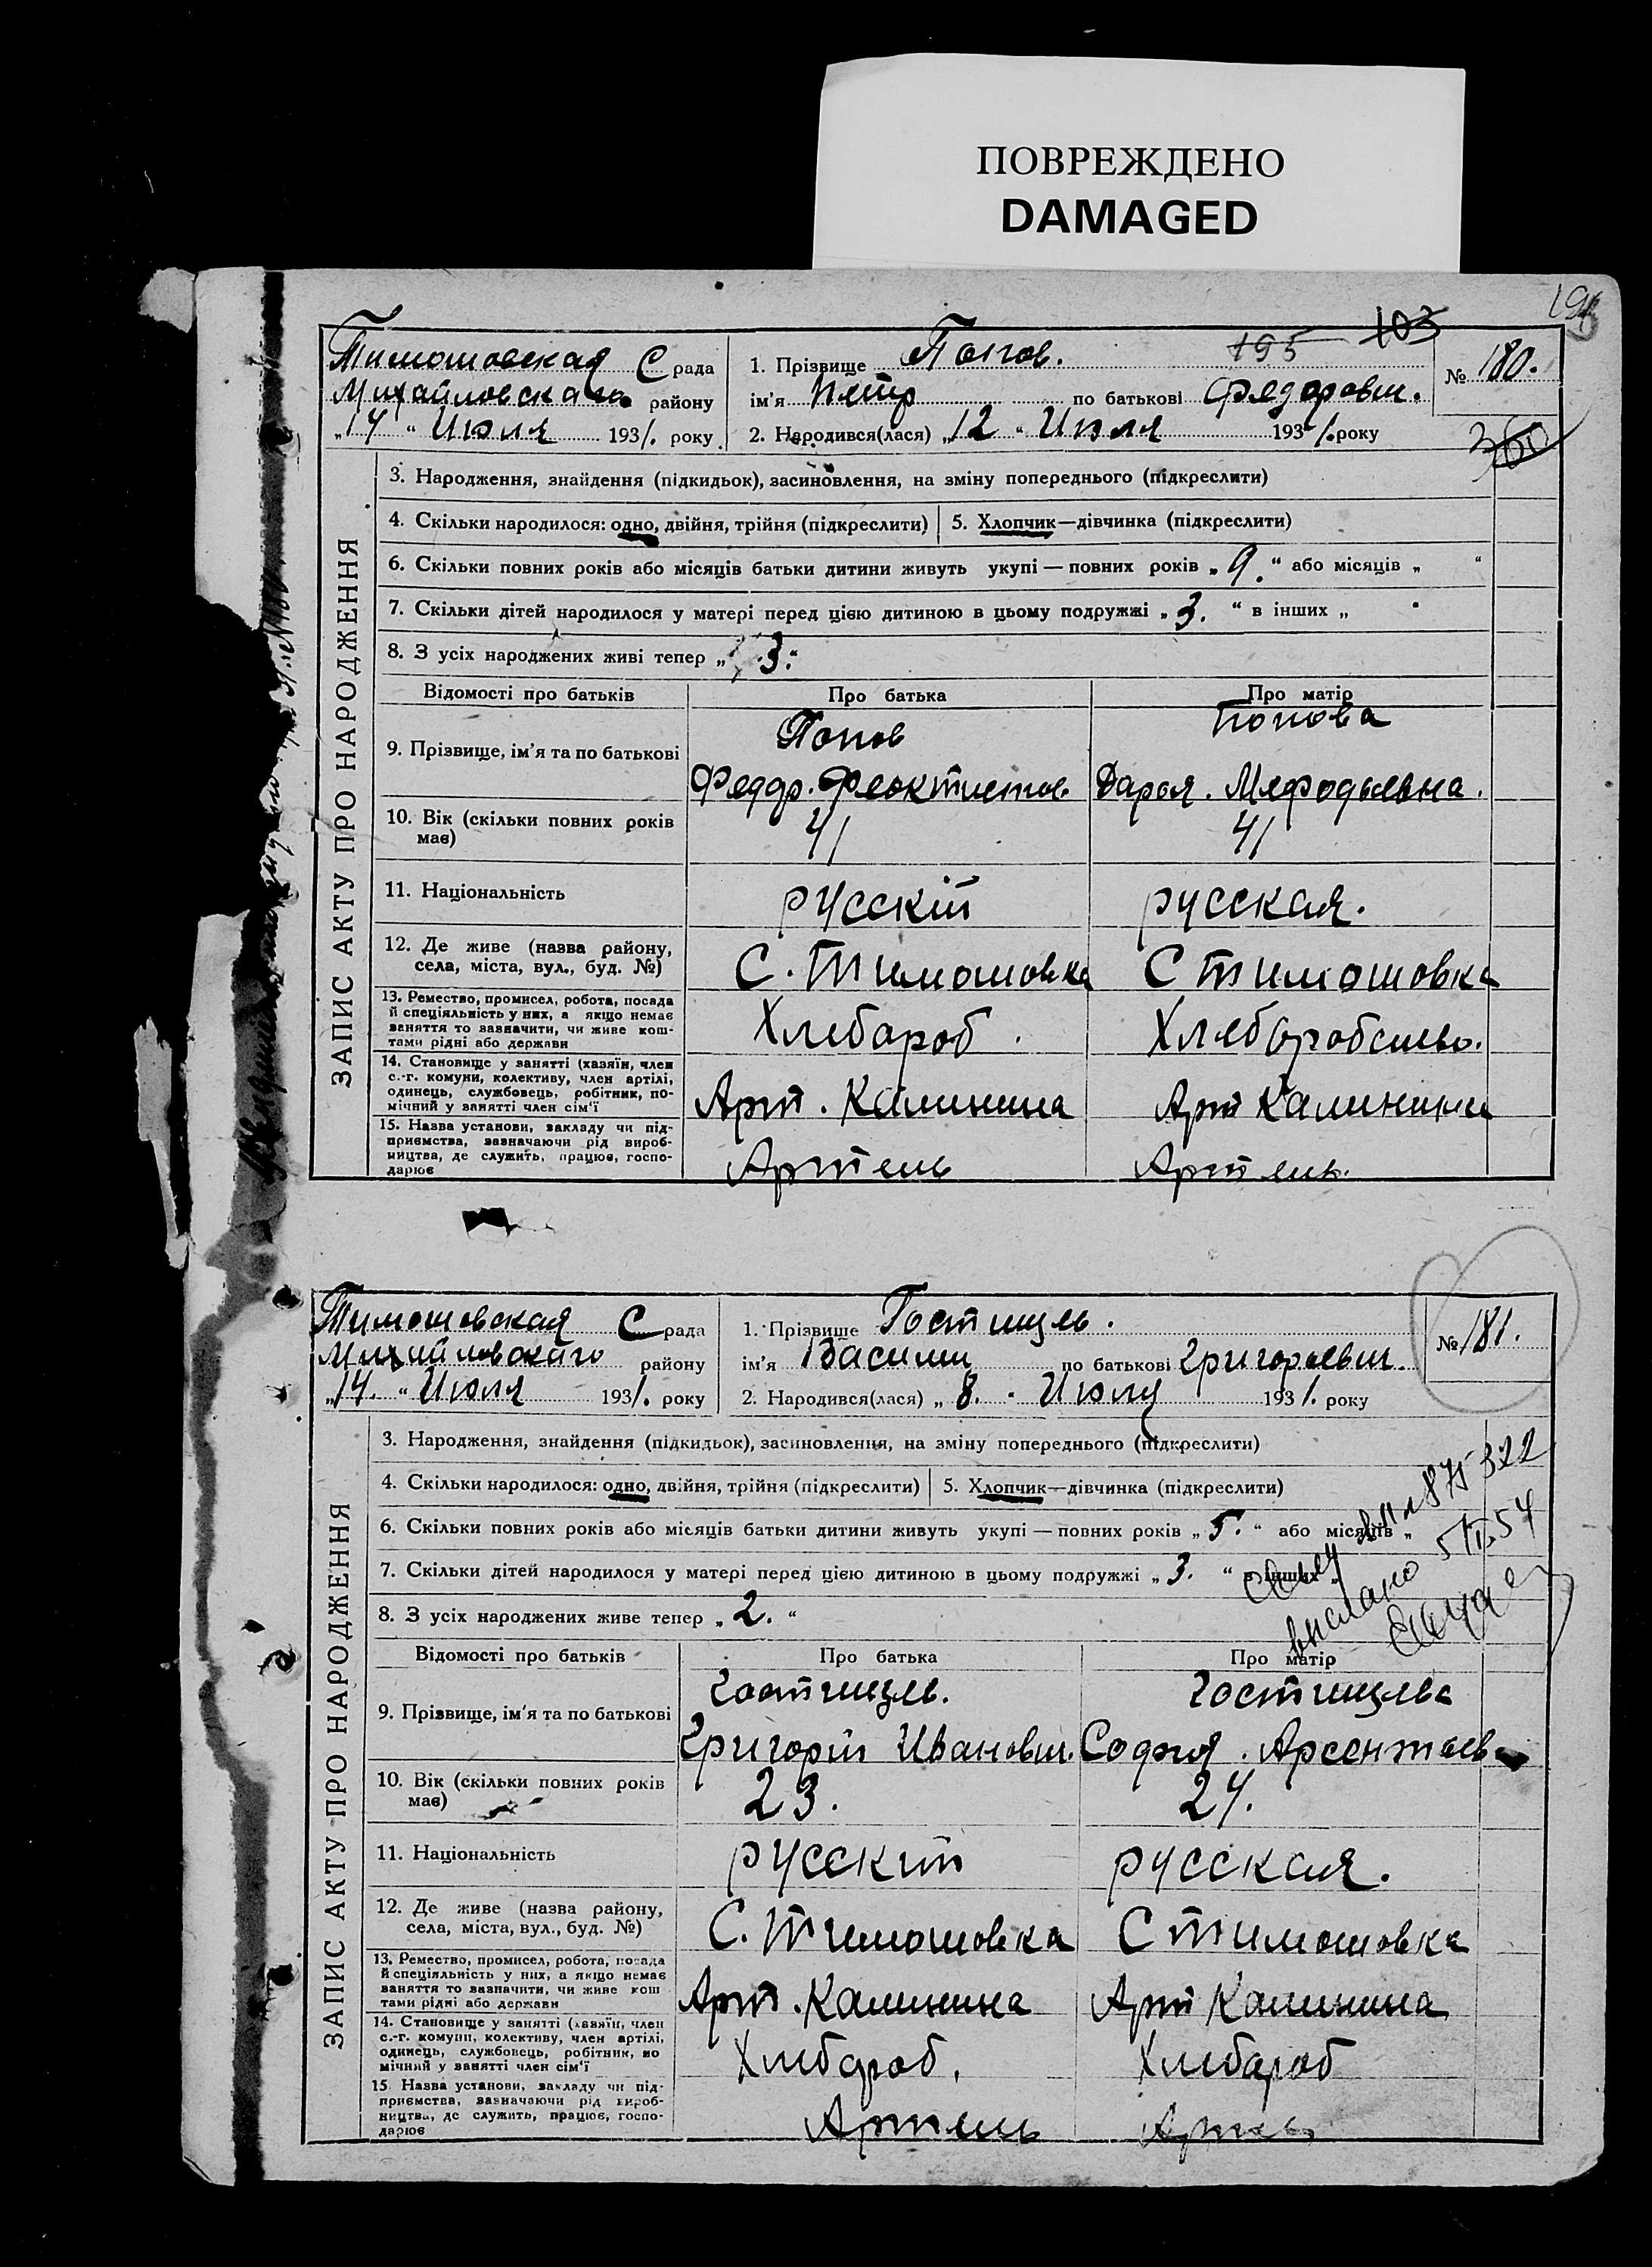 ПОВРЕЖДЕНО
DAMAGED
103
195
Тимошовская С рада
Михайловскаго району
„14 “ Июля 1931. року
1. Прізвище Попов.
ім'я Петр по батькові Федорович.
2. Народився(лася) „12 “ Июля 1931. року
№ 180.
360
ЗАПИС АКТУ ПРО НАРОДЖЕННЯ
3. Народження, знайдення (підкидьок), засиновлення, на зміну попереднього (підкреслити)
4. Скільки народилося: одно, двійня, трійня (підкреслити) 5. Хлопчик—дівчинка (підкреслити)
6. Скільки повних років або місяців батьки дитини живуть укупі — повних років „ 9. “ або місяців „ “
7. Скільки дітей народилося у матері перед цією дитиною в цьому подружжі „ 3. “ в інших „ “
8. З усіх народжених живі тепер „ 3. “
Відомості про батьків Про батька Про матір
9. Прізвище, ім'я та по батькові Попов Попова
Федор. Феоктистов Дарья. Мефодьевна.
10. Вік (скільки повних років має) 41 41
11. Національність русскій русская.
12. Де живе (назва району, села, міста, вул., буд. №) С. Тимошовка С Тимошовка
13. Ремество, промисел, робота, посада й спеціяльність у них, а якщо немає заняття то зазначити, чи живе коштами рідні або держави Хлебароб.
14. Становище у занятті (хазяїн, член с.-г. комуни, колективу, член артілі, одинець, службовець, робітник, помічний у занятті член сім'ї Арт. Калинина Арт Калинина
15. Назва установи, закладу чи підприємства, зазначаючи рід виробництва, де служить, працює, господарює Артель Артель.
Тимошовская С рада
Михайловскаго району
„14. “ Июля 1931. року
1. Прізвище Гостищев.
ім'я Василий по батькові Григорьевич.
2. Народився(лася) „ 8. “ Июля 1931. року
№ 181.
ЗАПИС АКТУ ПРО НАРОДЖЕННЯ
3. Народження, знайдення (підкидьок), засиновлення, на зміну попереднього (підкреслити)
4. Скільки народилося: одно, двійня, трійня (підкреслити) 5. Хлопчик—дівчинка (підкреслити)
6. Скільки повних років або місяців батьки дитини живуть укупі — повних років „ 5. “ або місяців „
7. Скільки дітей народилося у матері перед цією дитиною в цьому подружжі „ 3. “ в інших „
8. З усіх народжених живе тепер „ 2. “
выслано
Відомості про батьків Про батька Про матір
9. Прізвище, ім'я та по батькові Гостищев. Гостищева
Григорій Иванович. Софья. Арсентьев
10. Вік (скільки повних років має) 23. 24.
11. Національність русскій русская.
12. Де живе (назва району, села, міста, вул., буд. №) С. Тимошовка С Тимошовка
13. Ремество, промисел, робота, посада й спеціяльність у них, а якщо немає заняття то зазначити, чи живе коштами рідні або держави Арт. Калинина Арт Калинина
14. Становище у занятті (хазяїн, член с.-г. комуни, колективу, член артілі, одинець, службовець, робітник, помічний у занятті член сім'ї Хлебороб. Хлебароб
15 Назва установи, закладу чи підприємства, зазначаючи рід виробництва, де служить, працює, господарює Артель Артель